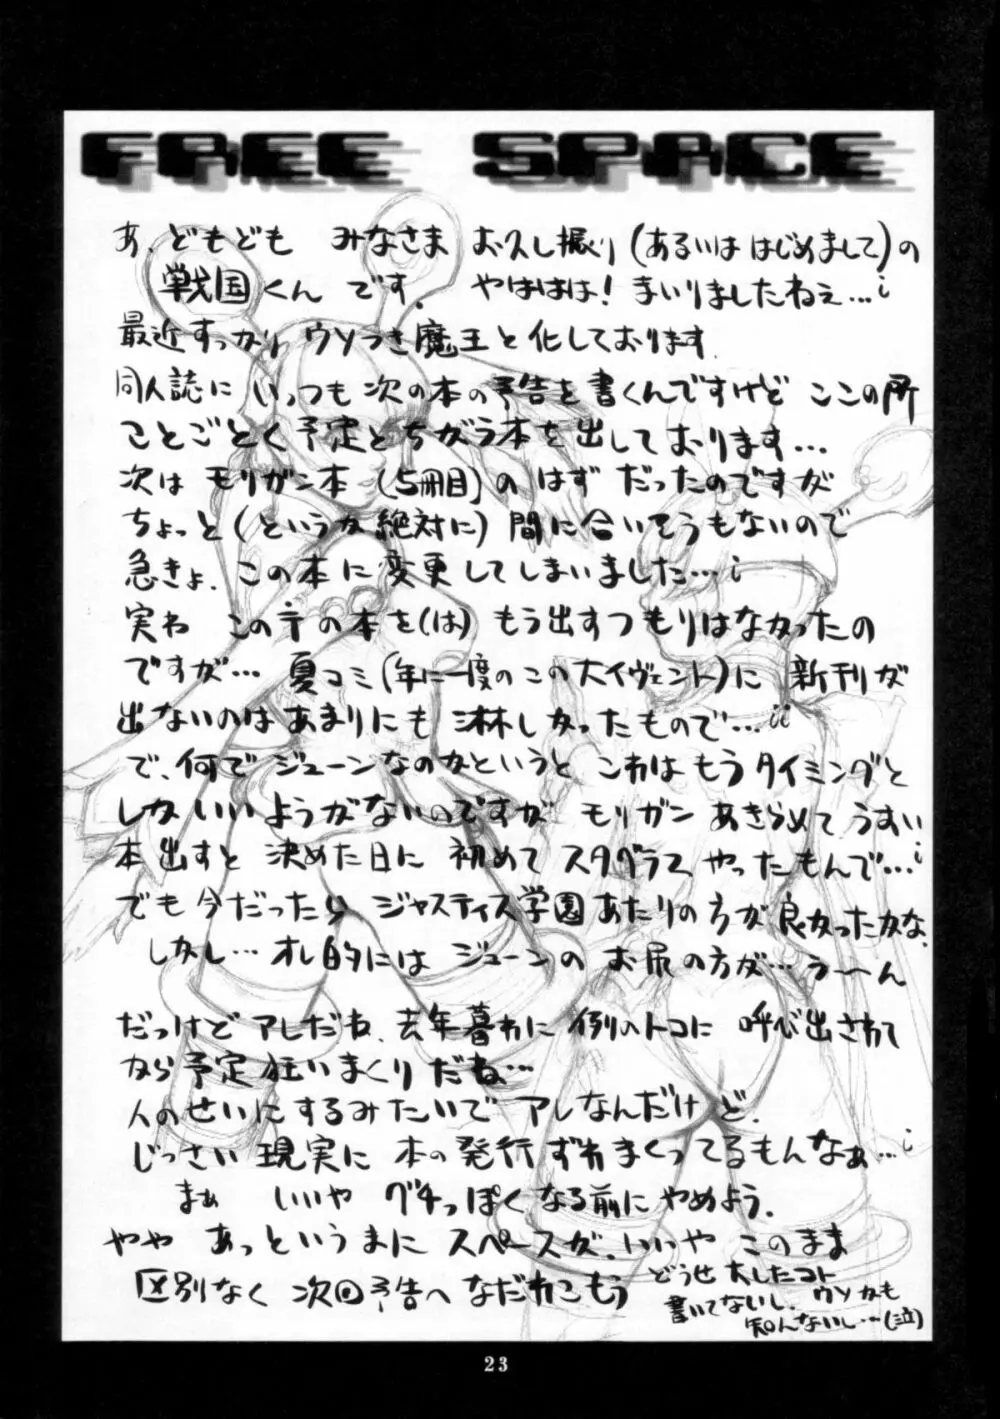 FREE SPACE
あ、どもども みなさま お久し振り(あるいは はじめまして)の
戦国くん です。 やははは! まいりましたねぇ…
最近すっかり ウソつき魔王と化しております。
同人誌に いっつも 次の本の予告を書くんですけど ここの所
ことごとく 予定とちがう本を出しております…
次は モリガン本 (5冊目)の はず だったのですが
ちょっと(というか 絶対に) 間に合いそうもないので
急きょ、この本に変更してしまいました…
実わ この手の本を(は) もう出すつもりはなかったの
ですが… 夏コミ(年に一度の この大イヴェント)に 新刊が
出ないのは あまりにも 淋しかったもので…
で、何で ジューンなのかというと これは もうタイミングと
しか いいようがないのですが モリガン あきらめて うすい
本出すと 決めた日に 初めて スタグラ2 やったもんで…
でも今だったら ジャスティス学園 あたりの方が 良かったかな、
しかし… オレ的には ジューンの お尻の方が… う〜〜ん
だっけど アレだね、去年暮れに 例のトコに 呼び出されて
から予定狂いまくりだね…
人のせいにするみたいで アレなんだけど、
じっさい 現実に 本の発行ずれまくってるもんなぁ…
まぁ いいや グチっぽくなる前に やめよう。
やや あっというまに スペースが、いいや このまま
区別なく 次回予告へ なだれこもう
どうせ 大したコト
書いてないし、ウソかも
知んないし…(泣)
23